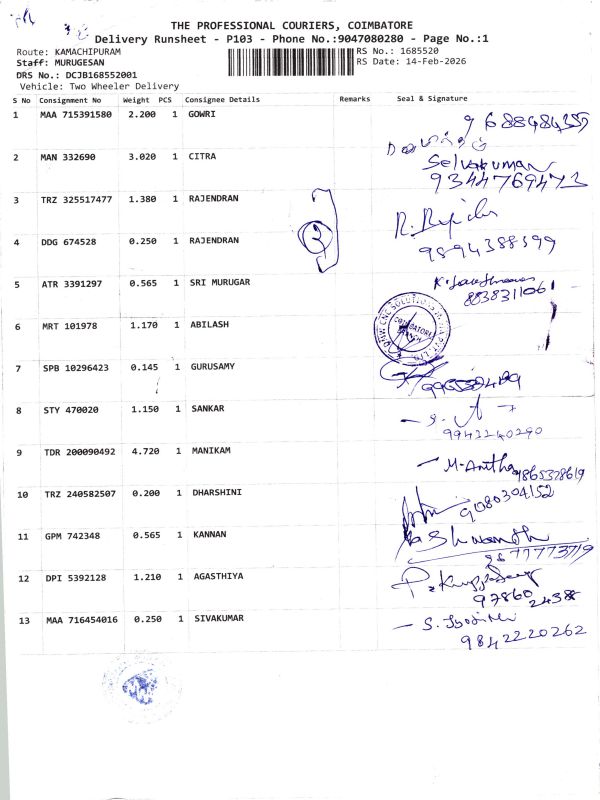 THE PROFESSIONAL COURIERS, COIMBATORE
Delivery Runsheet - P103 - Phone No.:9047080280 - Page No.:1
Route: KAMACHIPURAM
RS No.: 1685520
Staff: MURUGESAN
RS Date: 14-Feb-2026
DRS No.: DCJB168552001
Vehicle: Two Wheeler Delivery
S No Consignment No Weight PCS Consignee Details Remarks Seal & Signature
1 MAA 715391580 2.200 1 GOWRI
2 MAN 332690 3.020 1 CITRA Selvakumar
9344769473
3 TRZ 325517477 1.380 1 RAJENDRAN
3
4 DDG 674528 0.250 1 RAJENDRAN 9894388599
5 ATR 3391297 0.565 1 SRI MURUGAR
8838311061
6 MRT 101978 1.170 1 ABILASH COIMBATORE BRANCH
7 SPB 10296423 0.145 1 GURUSAMY
8 STY 470020 1.150 1 SANKAR
9943240290
9 TDR 200090492 4.720 1 MANIKAM M. Anitha 9865378619
10 TRZ 240582507 0.200 1 DHARSHINI 9080304152
11 GPM 742348 0.565 1 KANNAN
9877773719
12 DPI 5392128 1.210 1 AGASTHIYA
97860 24388
13 MAA 716454016 0.250 1 SIVAKUMAR
9842220262